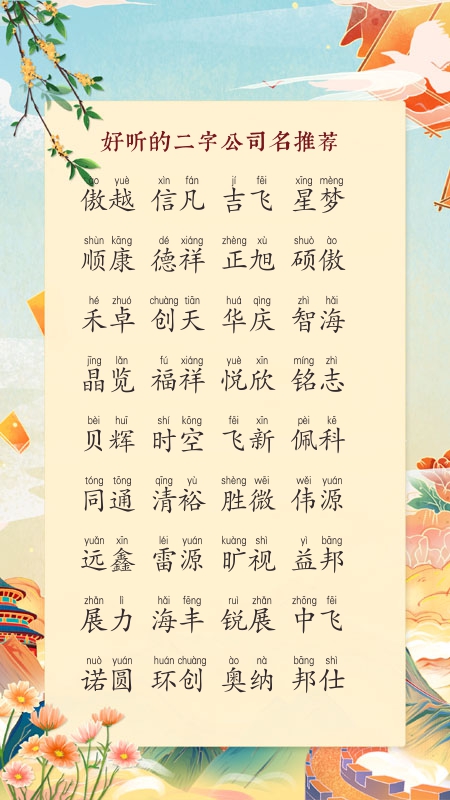 好听的二字公司名推荐
ào yuè xìn fán jí fēi xīng mèng
傲越 信凡 吉飞 星梦
shùn kāng dé xiáng zhèng xù shuò ào
顺康 德祥 正旭 硕傲
hé zhuó chuàng tiān huá qìng zhì hǎi
禾卓 创天 华庆 智海
jīng lǎn fú xiáng yuè xīn míng zhì
晶览 福祥 悦欣 铭志
bèi huī shí kōng fēi xīn pèi kē
贝辉 时空 飞新 佩科
tóng tōng qīng yù shèng wēi wěi yuán
同通 清裕 胜微 伟源
yuǎn xīn léi yuán kuàng shì yì bāng
远鑫 雷源 旷视 益邦
zhǎn lì hǎi fēng ruì zhǎn zhōng fēi
展力 海丰 锐展 中飞
nuò yuán huán chuàng ào nà bāng shì
诺圆 环创 奥纳 邦仕